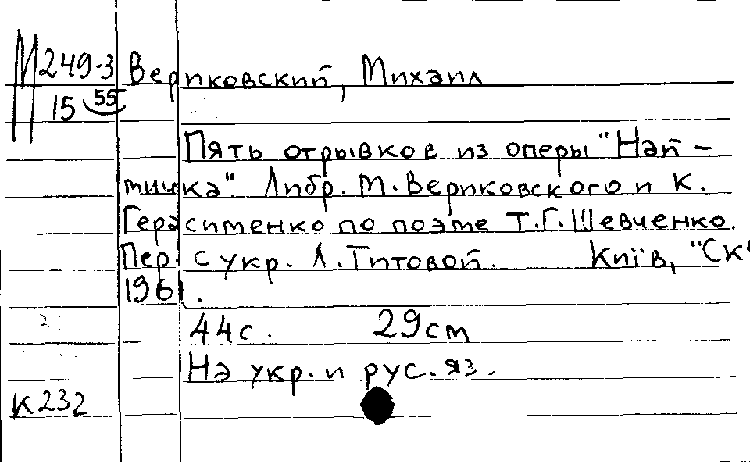 М249-3 Вериковский, Михаил
15 55
Пять отрывков из оперы "Най-
мичка". Либр. М. Вериковского и К.
Герасименко по поэме Т.Г. Шевченко.
Пер. с укр. Л. Титовой. Київ, "СК"
1961.
44с. 29см
На укр. и рус. яз.
К232